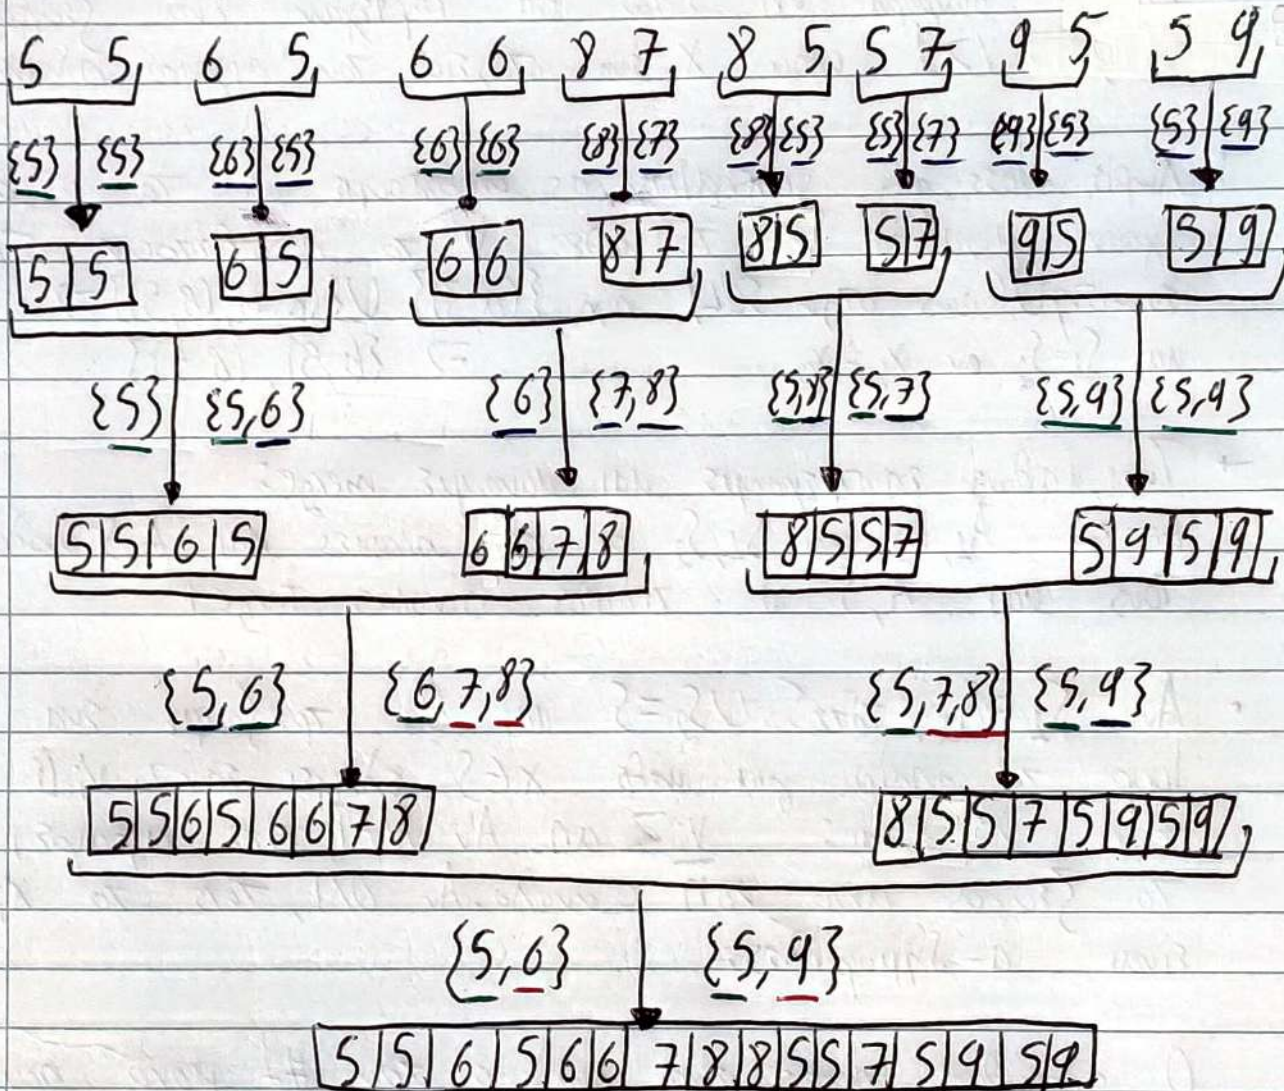 5 5 6 5 6 6 8 7 8 5 5 7 9 5 5 9
{5} {5} {6} {5} {6} {6} {8} {7} {8} {5} {5} {7} {9} {5} {5} {9}
5 5 6 5 6 6 8 7 8 5 5 7 9 5 5 9
{5} {5,6} {6} {7,8} {5,8} {5,7} {5,9} {5,9}
5 5 6 5 6 6 7 8 8 5 5 7 5 9 5 9
{5,6} {6,7,8} {5,7,8} {5,9}
5 5 6 5 6 6 7 8 8 5 5 7 5 9 5 9
{5,6} {5,9}
5 5 6 5 6 6 7 8 8 5 5 7 5 9 5 9